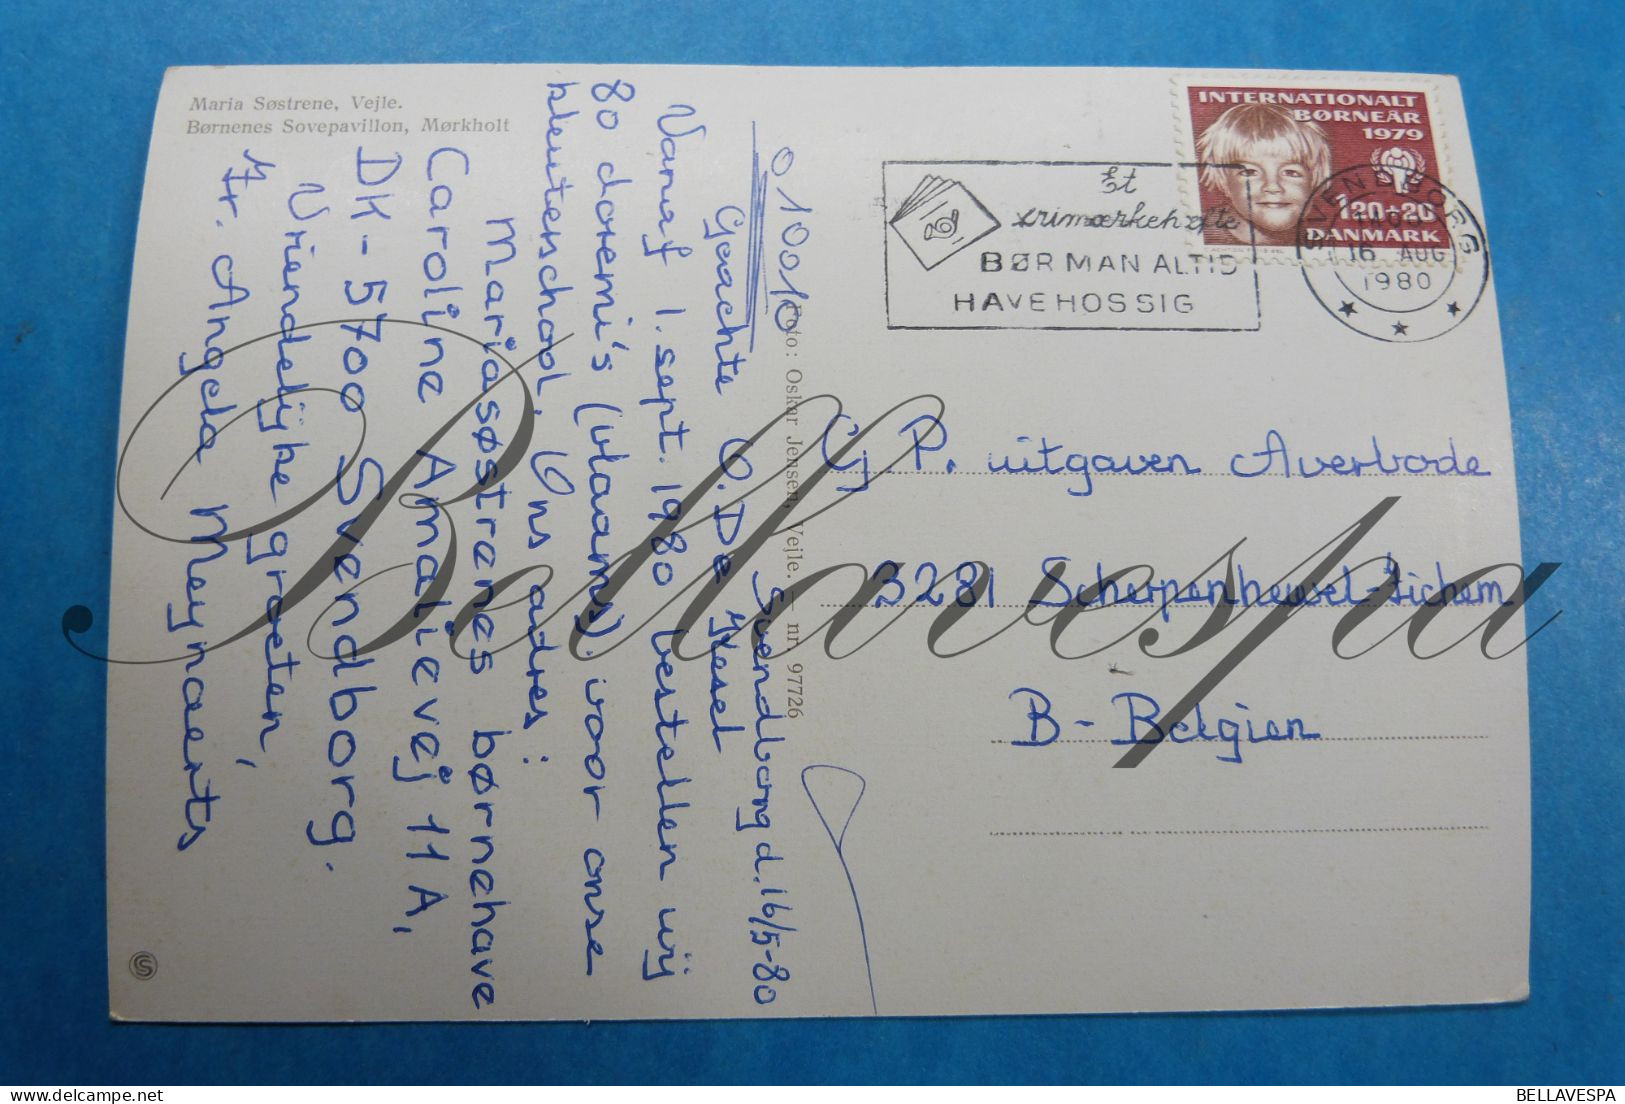 Maria Søstrene, Vejle.
Børnenes Sovepavillon, Mørkholt
01001/0
Svendborg d. 16/5-80
Geachte O. De
Vanaf 1. sept. 1980 bestellen wij
80 doremi's (vlaams). voor onse
kleuterschool. Ons adres:
Mariasøstrenes børnehave
Caroline Amalievej 11A,
DK-5700 Svendborg.
Vriendelijke groeten,
Zr. Angela Meynaerts
Foto: Oskar Jensen, Vejle. — nr. 97726
INTERNATIONALT
BØRNEÅR
1979
120+20
DANMARK
Et
frimærkehefte
BØR MAN ALTID
HAVE HOS SIG
SVENDBORG
16 AUG
1980
P. uitgaven Averbode
3281 Scherpenheuvel-Zichem
B-Belgien
Bellavespa
BELLAVESPA